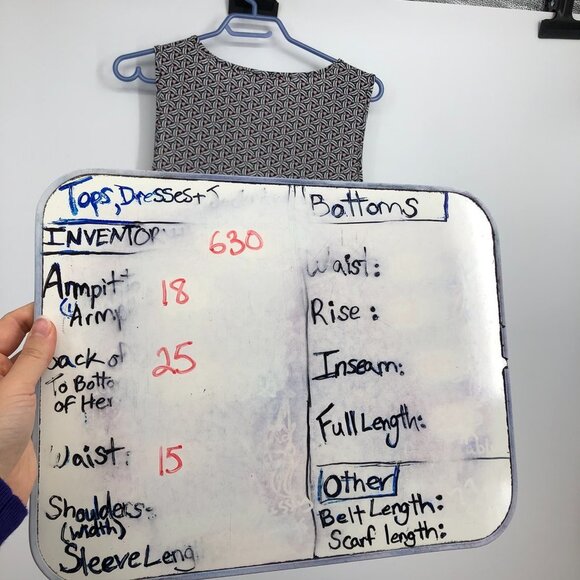 Tops, Dresses +
INVENTOR
630
Armpit
18
Arm
Back of
25
To Botto
of He
Waist:
15
Shoulders-
(width)
Sleeve Leng
Bottoms
Waist:
Rise:
Inseam:
Full Length:
Other
Belt Length:
Scarf length: